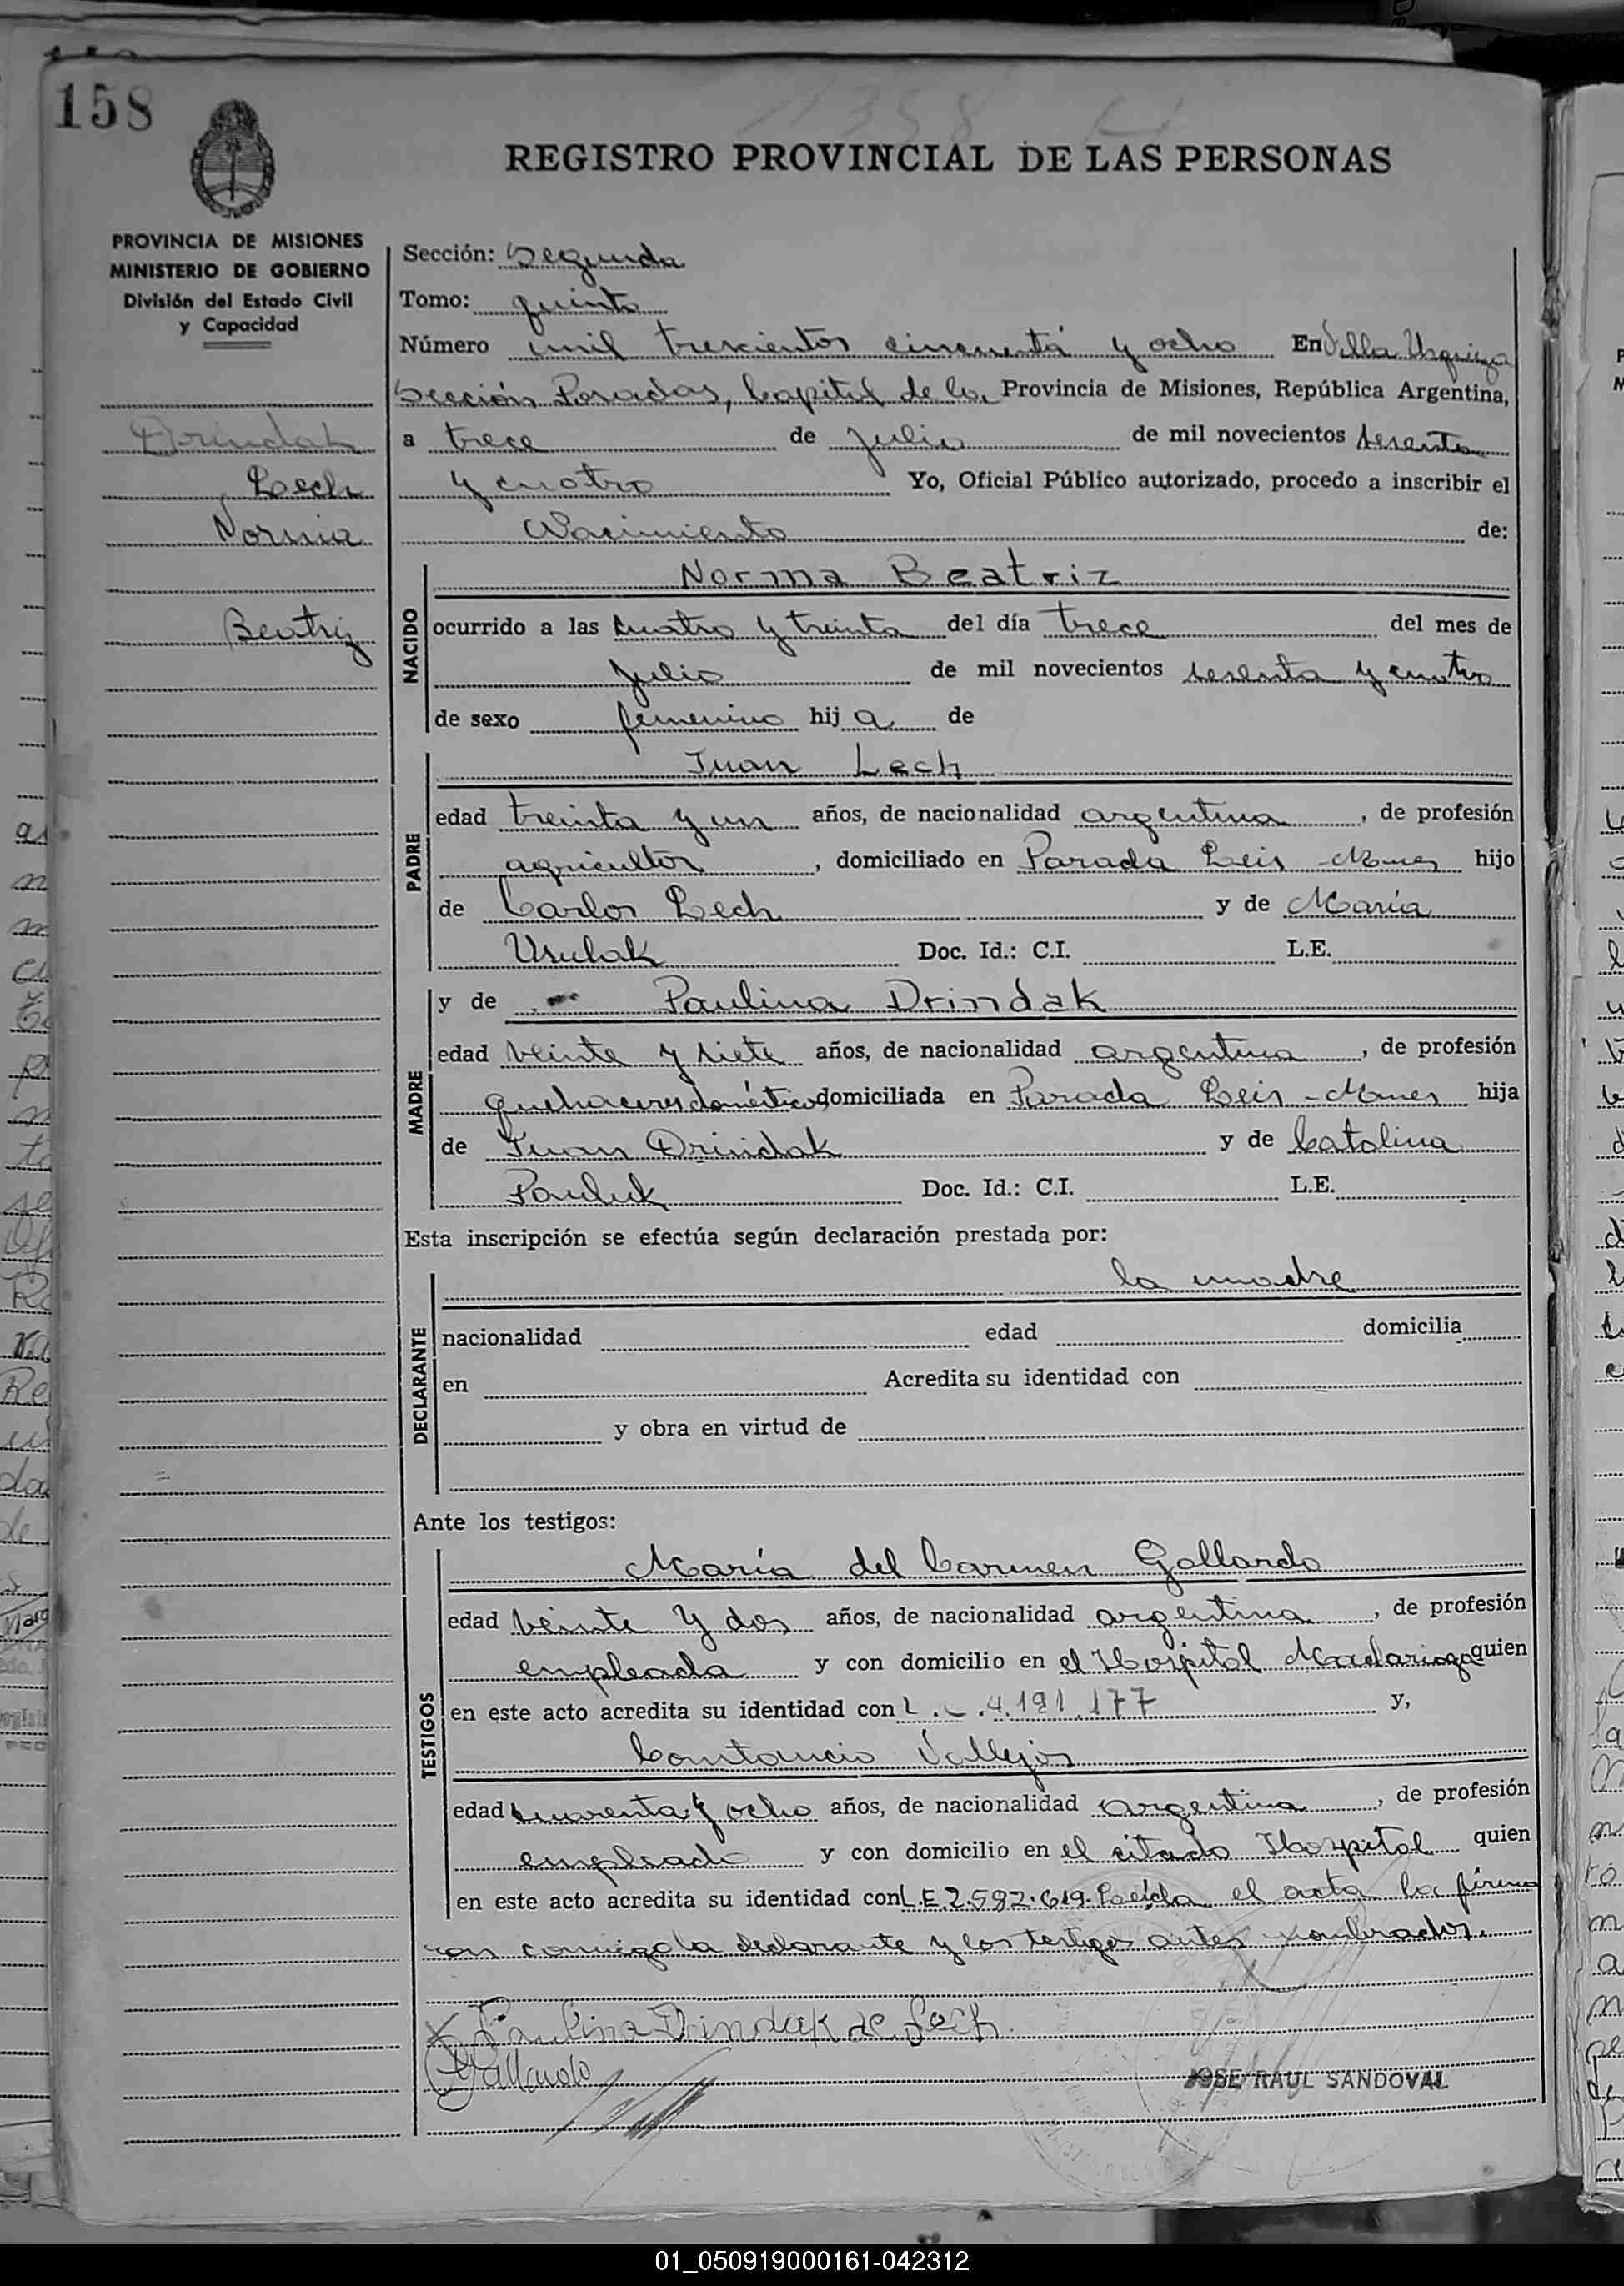 158
1358
REGISTRO PROVINCIAL DE LAS PERSONAS
PROVINCIA DE MISIONES
MINISTERIO DE GOBIERNO
División del Estado Civil
y Capacidad
Drindak
Lech
Norma
Beatriz
Sección: Segunda
Tomo: quinto
Número mil trescientos cincuenta y ocho En Villa Urquiza
Sección Posadas, Capital de la Provincia de Misiones, República Argentina,
a trece de julio de mil novecientos sesenta
y cuatro Yo, Oficial Público autorizado, procedo a inscribir el
Nacimiento de:
NACIDO
Norma Beatriz
ocurrido a las cuatro y treinta del día trece del mes de
julio de mil novecientos sesenta y cuatro
de sexo femenino hija de
PADRE
Juan Lech
edad treinta y un años, de nacionalidad argentina, de profesión
agricultor, domiciliado en Parada Leis - Mnes hijo
de Carlos Lech y de María
Usulak Doc. Id.: C.I. L.E.
MADRE
y de Paulina Drindak
edad veinte y siete años, de nacionalidad argentina, de profesión
quehaceres domésticos domiciliada en Parada Leis - Mnes hija
de Juan Drindak y de Catalina
Pauluk Doc. Id.: C.I. L.E.
Esta inscripción se efectúa según declaración prestada por:
DECLARANTE
la madre
nacionalidad edad domicilia
en Acredita su identidad con
y obra en virtud de
Ante los testigos:
TESTIGOS
María del Carmen Gallardo
edad veinte y dos años, de nacionalidad argentina, de profesión
empleada y con domicilio en el Hospital Madariaga quien
en este acto acredita su identidad con L.C. 4.191.177 y,
Constancio Vallejos
edad cuarenta y ocho años, de nacionalidad argentina, de profesión
empleado y con domicilio en el citado Hospital quien
en este acto acredita su identidad con L.E. 2.592.619. Leída el acta la firma
ron conmigo la declarante y los testigos antes nombrados.
Paulina Drindak de Lech
Gallardo
JOSE RAUL SANDOVAL
01_050919000161-042312